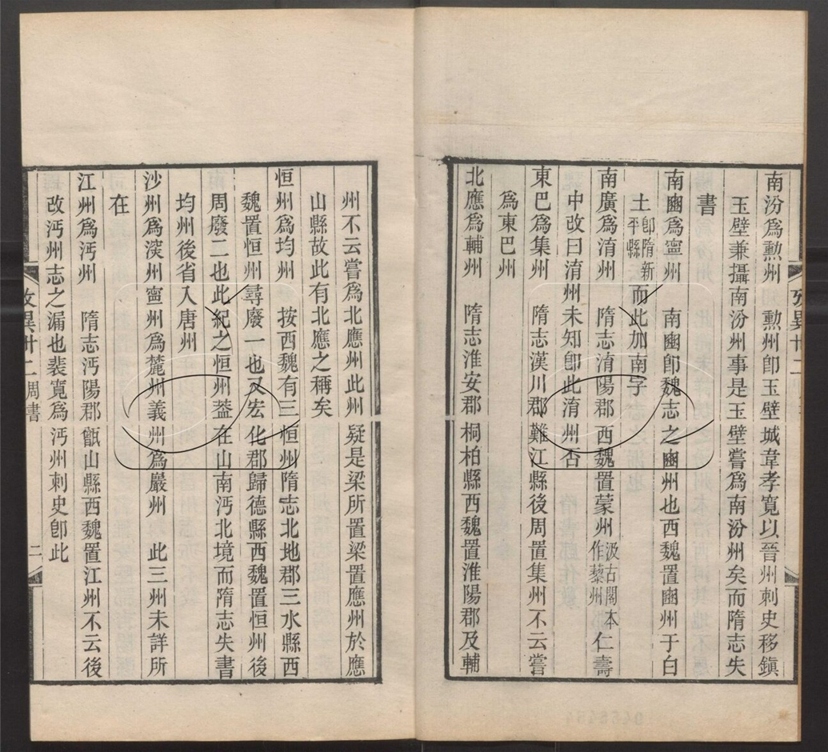 南汾爲勲州　勲州卽玉壁城韋孝寬以晉州刺史移鎭
玉壁兼攝南汾州事是玉壁嘗爲南汾州矣而隋志失
書
南豳爲寧州　南豳卽魏志之豳州也西魏置豳州于白
土卽隋新平縣而此加南字
南廣爲淯州　隋志淯陽郡西魏置蒙州汲古閣本作蔾州仁壽
中改曰淯州未知卽此淯州否
東巴爲集州　隋志漢川郡難江縣後周置集州不云嘗
爲東巴州
北應爲輔州　隋志淮安郡桐柏縣西魏置淮陽郡及輔
州不云嘗爲北應州此州疑是梁所置梁置應州於應
山縣故此有北應之稱矣
恒州爲均州　按西魏有三恒州隋志北地郡三水縣西
魏置恒州尋廢一也又宏化郡歸德縣西魏置恒州後
周廢二也此紀之恒州葢在山南沔北境而隋志失書
均州後省入唐州
沙州爲深州寧州爲麓州義州爲嚴州　此三州未詳所
在
江州爲沔州　隋志沔陽郡甑山縣西魏置江州不云後
改沔州志之漏也裴寬爲沔州刺史卽此
攷異卅二周書
二